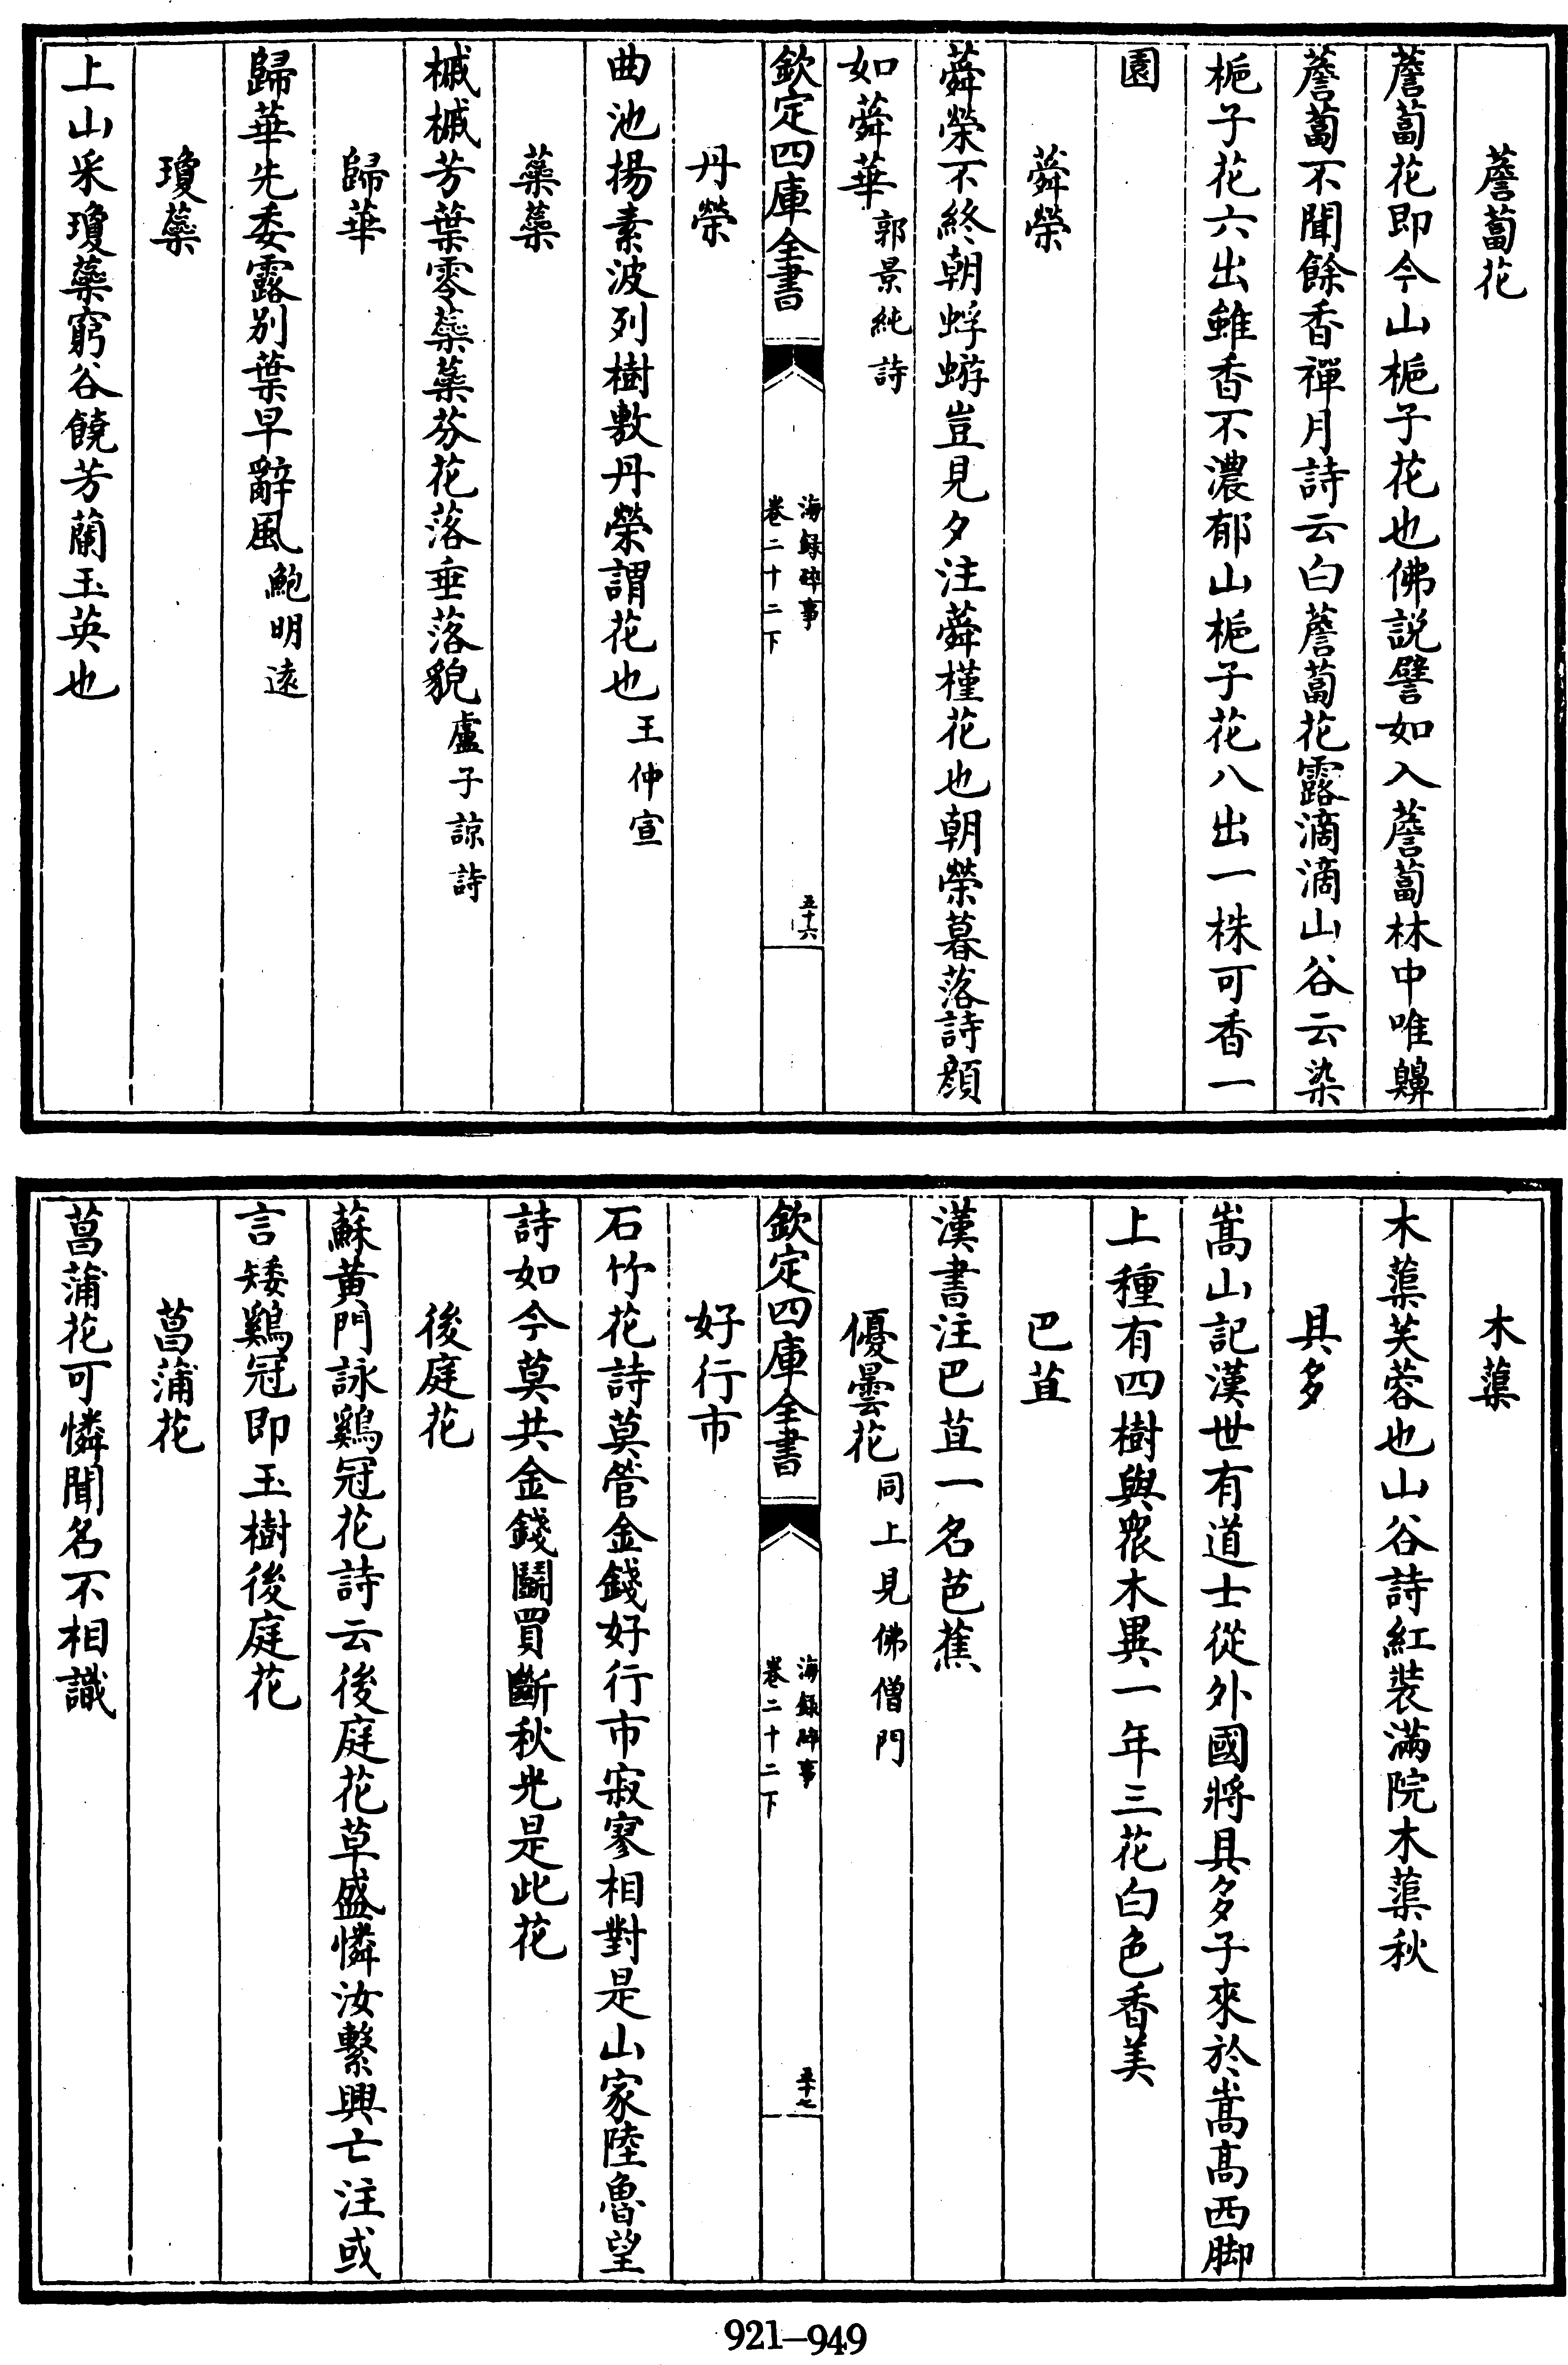 薝蔔花
薝蔔花即今山栀子花也佛説譬如入薝蔔林中唯齅
薝蔔不聞餘香禪月詩云白薝蔔花露滴滴山谷云染
栀子花六出雖香不濃郁山栀子花八出一株可香一
園
蕣榮
蕣榮不終朝蜉蝣豈見夕注蕣槿花也朝榮暮落詩顔
如蕣華郭景純詩
欽定四庫全書
海録碎事
卷二十二下
五十六
丹榮
曲池揚素波列樹敷丹榮謂花也王仲宣
蘂蘂
摵摵芳葉零蘂蘂芬花落垂落貌盧子諒詩
歸華
歸華先委露别葉早辭風鮑明遠
瓊蘂
上山采瓊蘂窮谷饒芳蘭玉英也
木蕖
木蕖芙蓉也山谷詩紅装滿院木蕖秋
具多
嵩山記漢世有道士從外國將具多子來於嵩髙西脚
上種有四樹與衆木異一年三花白色香美
巴苴
漢書注巴苴一名芭蕉
優曇花同上見佛僧門
欽定四庫全書
海録碎事
卷二十二下
五十七
好行市
石竹花詩莫管金錢好行市寂寥相對是山家陸魯望
詩如今莫共金錢鬭買斷秋光是此花
後庭花
蘇黄門詠鷄冠花詩云後庭花草盛憐汝繫興亡注或
言矮鷄冠即玉樹後庭花
菖蒲花
菖蒲花可憐聞名不相識
921—949